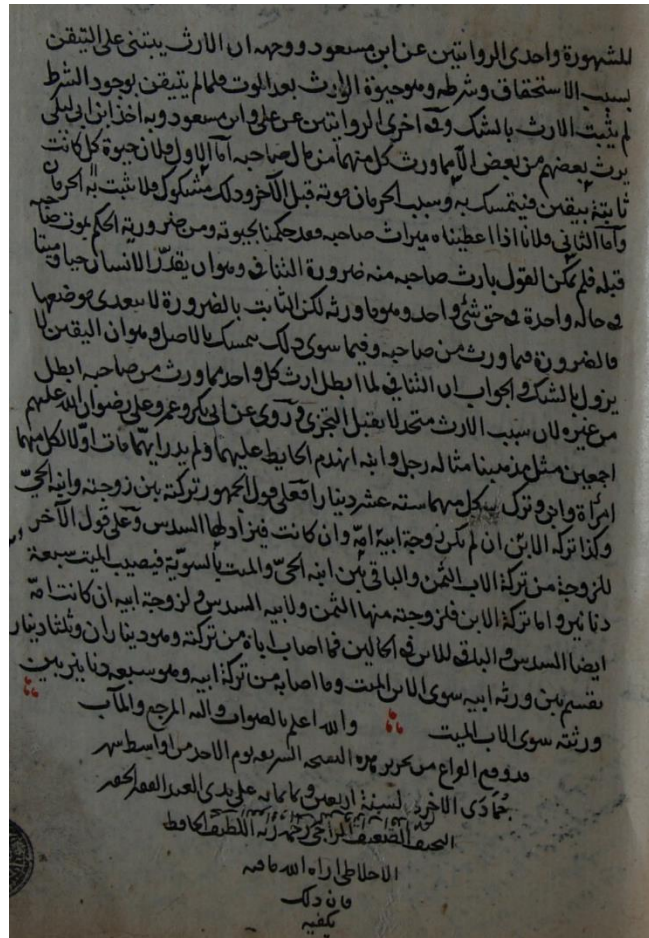 للمشهورة واحدى الروايتين عن ابن مسعود ووجهه ان الارث يبتنى على التيقن
بسبب الاستحقاق وشرطه وهو حيوة الوارث بعد الموت فلما لم يتيقن بوجود الشرط
لم يثبت الارث بالشك وفى اخرى الروايتين عن على وابن مسعود وبه اخذ ابن ابى ليلى
يرث بعضهم من بعض الا مما ورث كل منهما من مال صاحبه اما الاول فلان حيوة كل كانت
ثابتة بيقين فيتمسك به وسبب الحرمان موته قبل الآخر وذلك مشكوك فلا يثبت به الحرمان
واما الثانى فلانا اذا اعطيناه ميراث صاحبه فقد حكمنا بحيوته ومن ضرورية الحكم بموت صاحبه
قبله فلم يمكن القول بارث صاحبه منه ضرورة التنافى وهو ان يقدر الانسان حيا وميتا
فى حالة واحدة فى حق شئ واحد وهو ما ورثه لكن الثابت بالضرورة لا يتعدى موضعها
فالضرورة فيما ورث من صاحبه وفيما سوى ذلك يتمسك بالاصل وهو ان اليقين لا
يزول بالشك والجواب ان التنافى لما ابطل ارث كل واحد مما ورث من صاحبه ابطل
من غيره لان سبب الارث متحد لا يقبل التجزى وروى عن ابى بكر وعمر وعلى رضوان الله عليهم
اجمعين مثل مذهبنا مثاله رجل وابنه انهدم الحايط عليهما ولم يدر ايهما مات اولا لكل منهما
امرأة وابن وترك كل منهما ستة عشر دينارا فعلى قول الجمهور تركته بين زوجته وابنه الحى
وكذا تركة الابن ان لم يكن زوجة ابيه امه وان كانت فيزاد لها السدس وعلى قول الآخر
للزوجة من تركة الاب الثمن والباقى بين ابنه الحى والميت بالسوية فيصيب الميت سبعة
دنانير واما تركة الابن فلزوجته منها الثمن ولابيه السدس ولزوجة ابيه ان كانت امه
ايضا السدس والباقى للابن فى الحالين فما اصاب اباه من تركته وهو ديناران وثلثا دينار
تقسم بين ورثة ابيه سوى الابن الميت وما اصابه من تركة ابيه وهو سبعة دنانير بين
ورثته سوى الاب الميت والله اعلم بالصواب واليه المرجع والمآب
قد وقع الفراغ من تحرير هذه النسخة الشريفة يوم الاحد من اواسط شهر
جمادى الاخرى لسنة اربعين وثمانمائة على يدى العبد الفقير الحقير
النحيف الضعيف الراجى رحمة ربه اللطيف الحافظ
الاخلاطى اراه الله ما فيه
فان ذلك
يكفيه